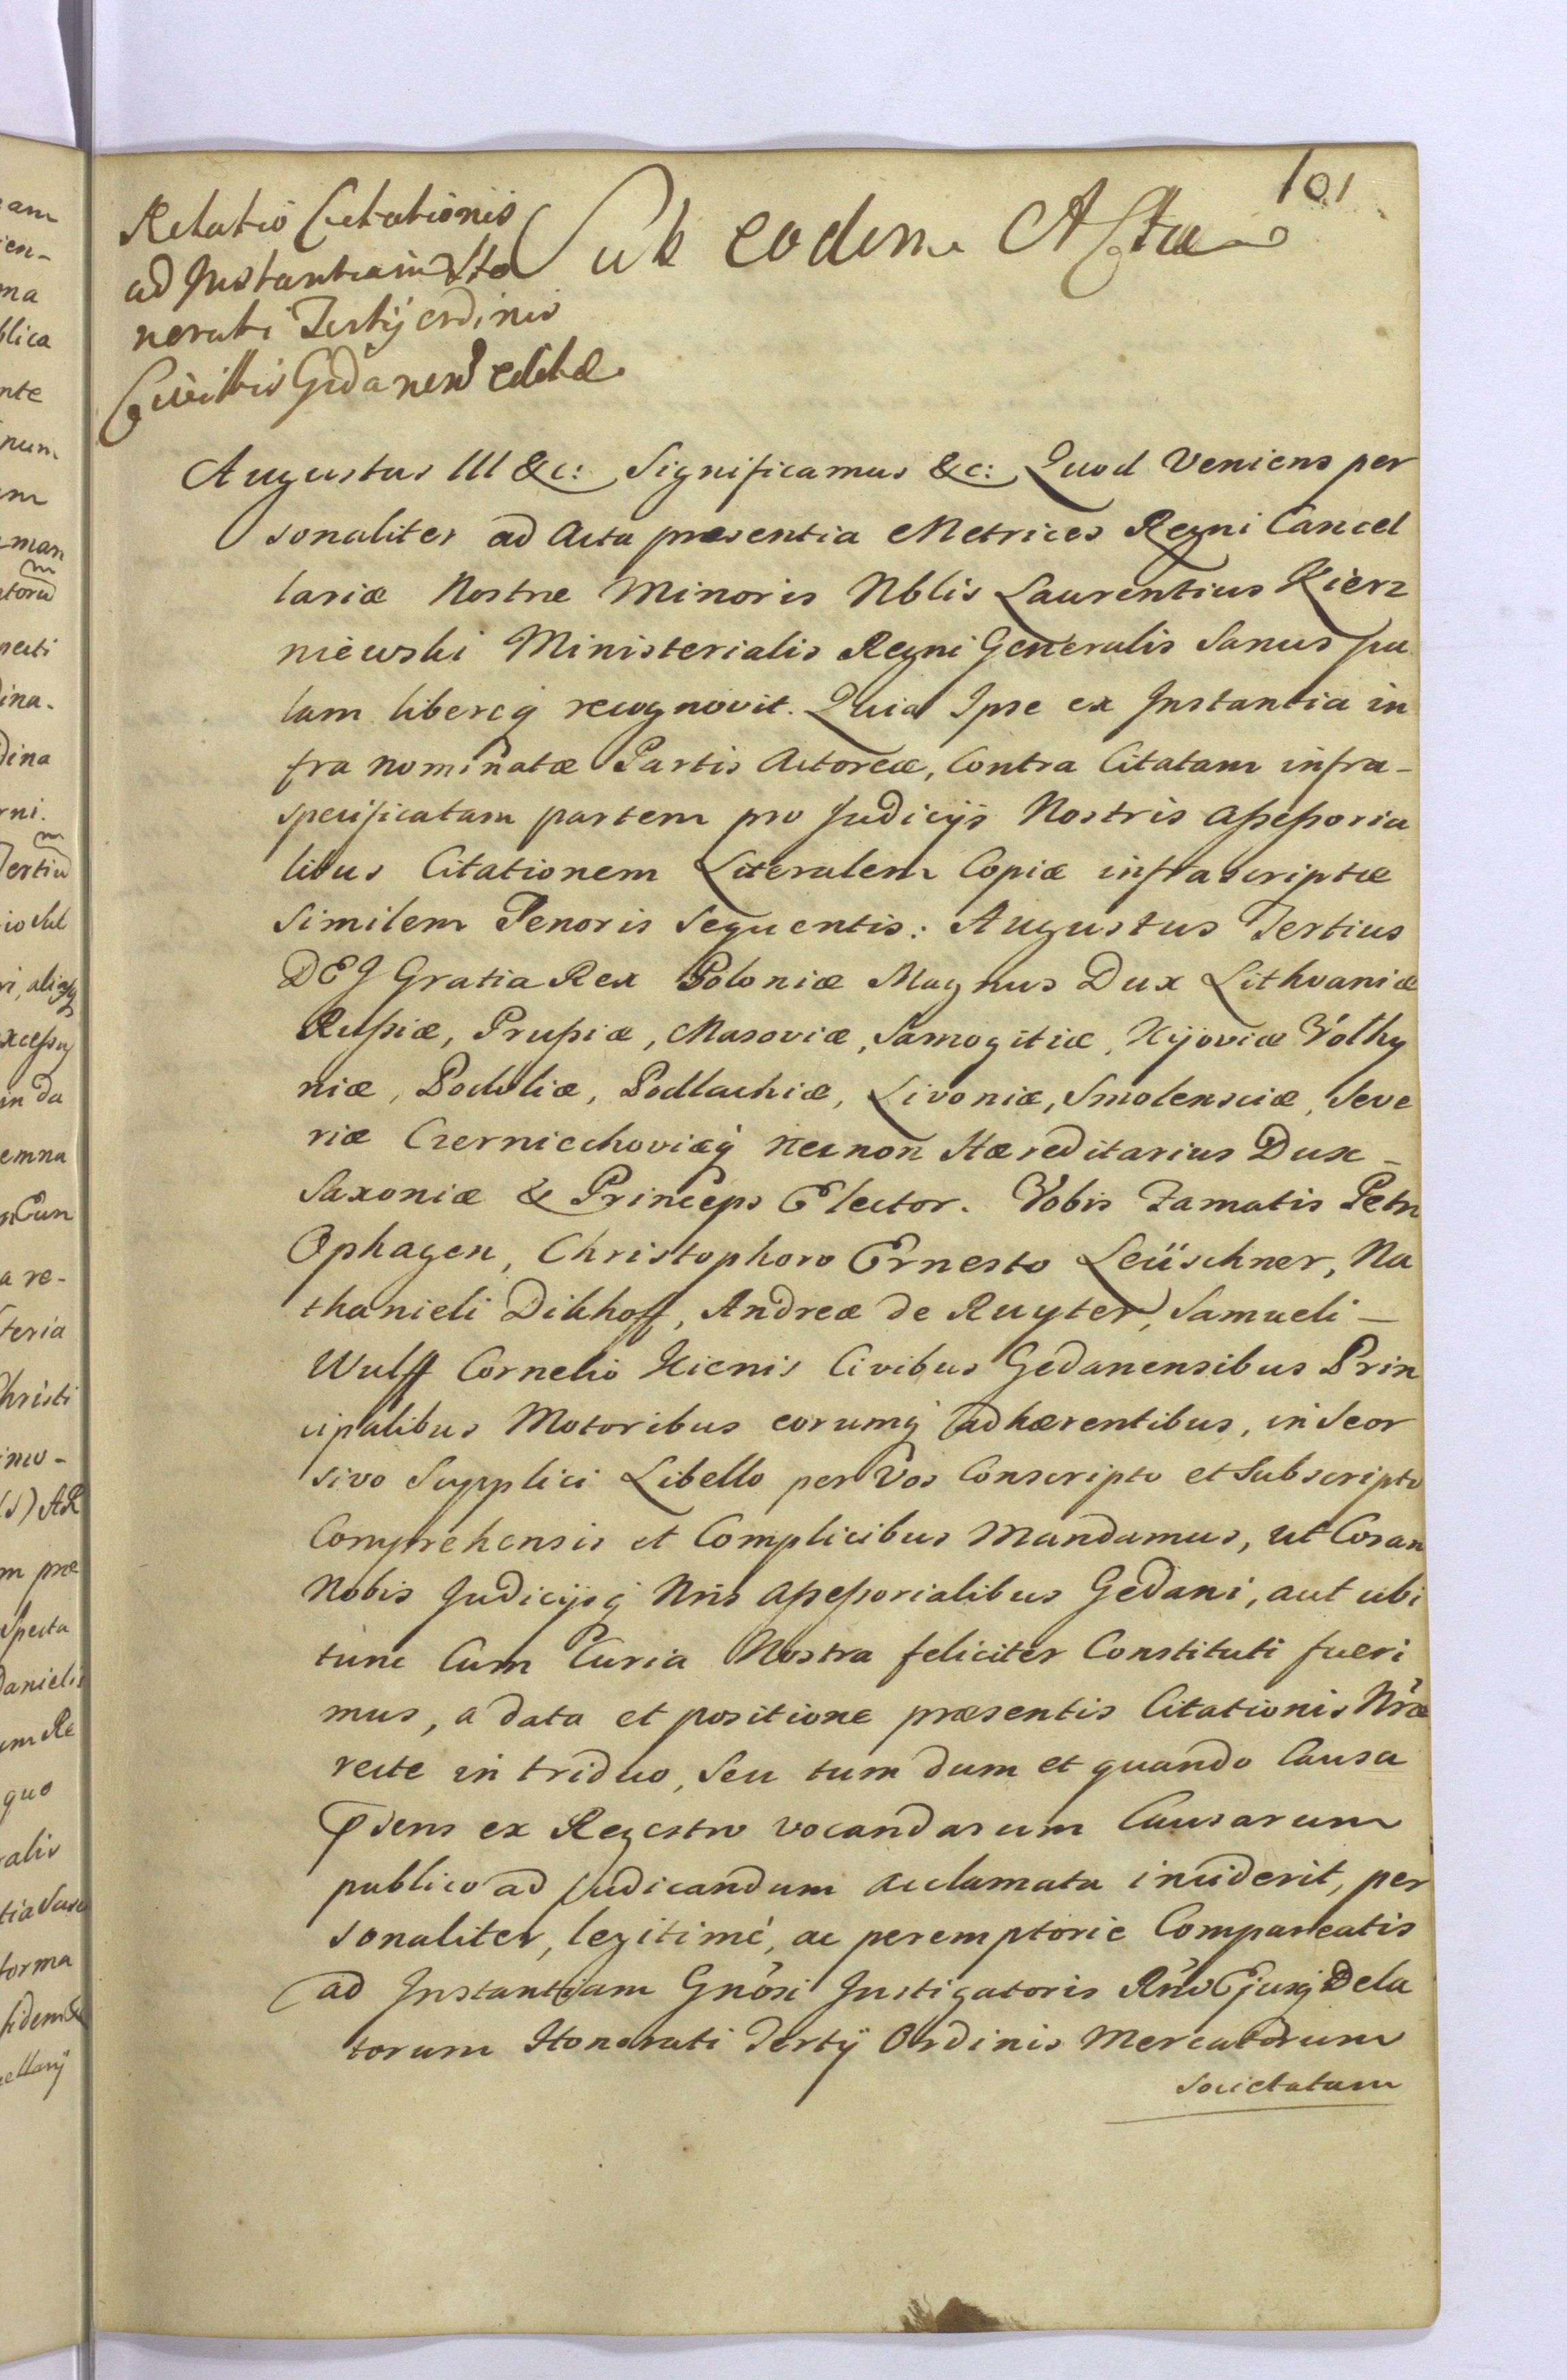 101
Relatio Citationis
ad Instantiam Ho
norati Tertij ordinis
Civittis Gedanens editæ
Sub eodem Actu
Augustus III &c: Significamus &c: Quod Veniens per
sonaliter ad Acta præsentia Metrices Regni Cancel
lariæ Nostræ Minoris Nblis Laurentius Kierz
niewski Ministerialis Regni Generalis Sanus pa
lam libereq recognovit. Quia Ipse ex Instantia in
fra nominatæ Partis Actoreæ, Contra Citatam infra-
specificatam partem pro Judicijs Nostris Assessoria
libus Citationem Literalem Copiæ infrascriptæ
Similem Tenoris Sequentis: Augustus Tertius
DEJ Gratia Rex Poloniæ Magnus Dux Lithvaniæ
Russiæ, Prussiæ, Masoviæ, Samogitiæ, Kijoviæ Volhy
niæ, Podoliæ, Podlachiæ, Livoniæ, Smolensciæ, Seve
riæ Czerniechoviæq necnon Hæreditarius Dux-
Saxoniæ & Princeps Elector. Vobis Famatis Petro
Ophagen, Christophoro Ernesto Leüschner, Na
thanieli Dikhoff, Andreæ de Ruyter, Samueli-
Wulff Cornelio Kienis Civibus Gedanensibus Prin
cipalibus Motoribus eorumq adhærentibus, in Seor
sivo Supplici Libello per Vos Conscripto et Subscripto
Comprehensis et Complicibus Mandamus, ut Coram
Nobis Judicijsq Nris Assessorialibus Gedani, aut ubi
tunc Cum Curia Nostra feliciter Constituti fueri
mus, a data et positione præsentis Citationis Nræ
recte in triduo, Seu tum dum et quando Causa
Psens ex Regestro vocandarum Causarum
publico ad judicandum acclamata inciderit, per
sonaliter, legitimé, ac peremptorie Compareatis
ad Instantiam Gnosi Instigatoris Rni Ejusq Dela
torum Honorati Tertij Ordinis Mercatorum
Societatum